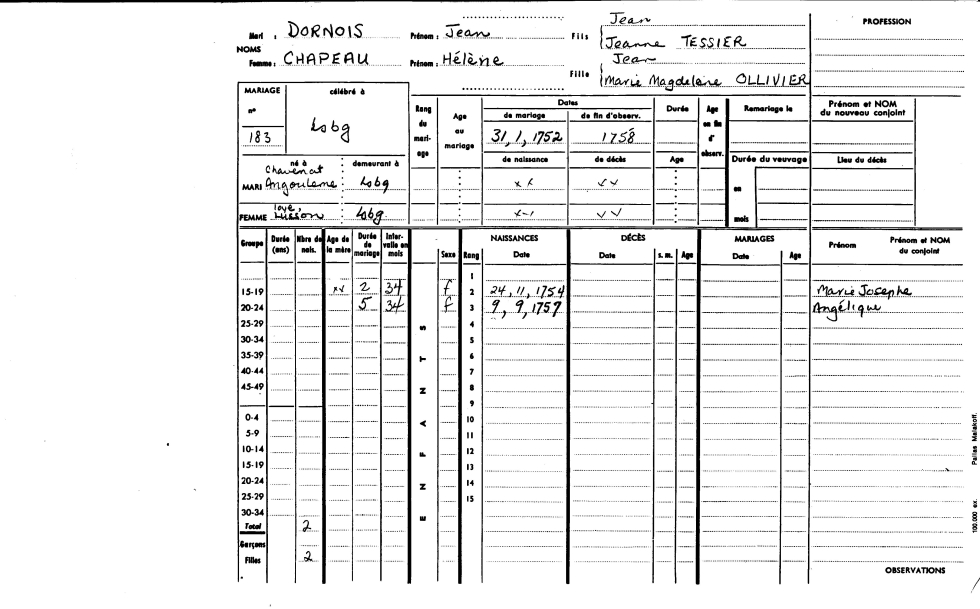 Jean
Mari : DORNOIS Prénom : Jean Fils Jeanne TESSIER PROFESSION
NOMS
Jean
Femme : CHAPEAU Prénom : Hélène
Fille Marie Magdeleine OLLIVIER
MARIAGE célébré à
n°
183 Lsbg
Rang du mariage
Age au mariage
Dates
de mariage de fin d'observ.
31, 1, 1752 1758
Durée
Age en fin d'observ.
Remariage le
Prénom et NOM du nouveau conjoint
né à demeurant à
de naissance de décès Age
Durée du veuvage
Lieu du décès
Chavenat
MARI Angouleme : Lsbg xx vv
en
loye,
FEMME Lusson Lsbg x-1 vv
mois
Groupe Durée (ans) Nbre de nais. Age de la mère Durée de mariage Intervalle en mois
ENFANTS
Sexe Rang
NAISSANCES
Date
DÉCÈS
Date s. m. Age
MARIAGES
Date Age
Prénom
Prénom et NOM du conjoint
1
15-19 xv 2 34 f 2 24, 11, 1754 Marie Josephe
20-24 5 34 f 3 9, 9, 1757 Angélique
25-29 4
30-34 5
35-39 6
40-44 7
45-49 8
9
0-4 10
5-9 11
10-14 12
15-19 13
20-24 14
25-29 15
30-34
Total 2
Garçons
Filles 2
OBSERVATIONS
100.000 ex. Pallas Malakoff.